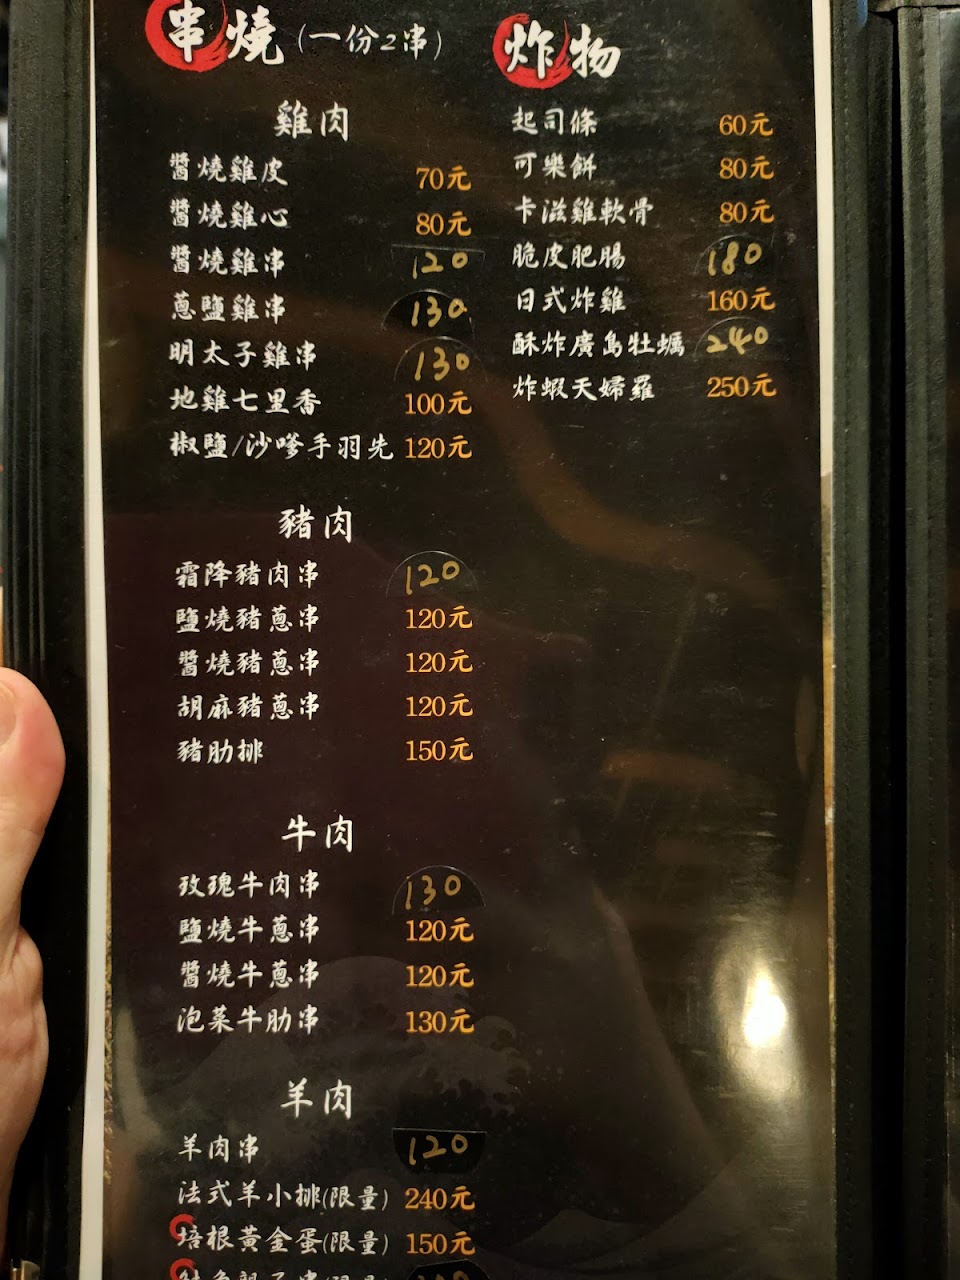 串燒(一份2串)
雞肉
醬燒雞皮 70元
醬燒雞心 80元
醬燒雞串 120
蔥鹽雞串 130
明太子雞串 130
地雞七里香 100元
椒鹽/沙嗲手羽先 120元
豬肉
霜降豬肉串 120
鹽燒豬蔥串 120元
醬燒豬蔥串 120元
胡麻豬蔥串 120元
豬肋排 150元
牛肉
玫瑰牛肉串 130
鹽燒牛蔥串 120元
醬燒牛蔥串 120元
泡菜牛肋串 130元
羊肉
羊肉串 120
法式羊小排(限量) 240元
培根黃金蛋(限量) 150元
炸物
起司條 60元
可樂餅 80元
卡滋雞軟骨 80元
脆皮肥腸 180
日式炸雞 160元
酥炸廣島牡蠣 240
炸蝦天婦羅 250元